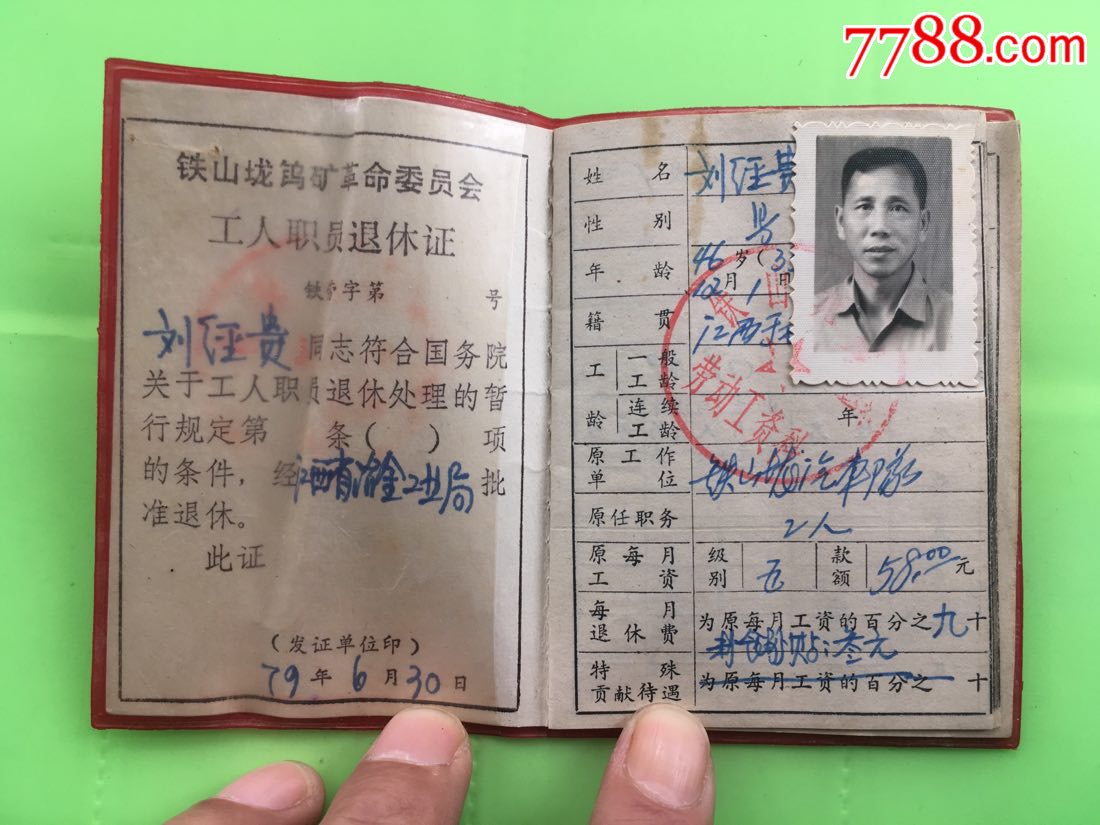 7788.com
铁山垅钨矿革命委员会
工人职员退休证
铁 字第 号
刘经贵同志符合国务院
关于工人职员退休处理的暂
行规定第 条( )项
的条件,经江西省冶金工业局批
准退休。
此证
(发证单位印)
79年6月30日
姓名 刘经贵
性别 男
年龄 46岁(3
12月1
籍贯 江西
工龄 一般工龄
连续工龄 年
劳动工资科
原工作单位 铁山垅汽车队
原任职务 工人
原每月工资 级别 五 款额 58.00元
每月退休费 为原每月工资的百分之九十
补贴:叁元
特殊贡献待遇 为原每月工资的百分之 十